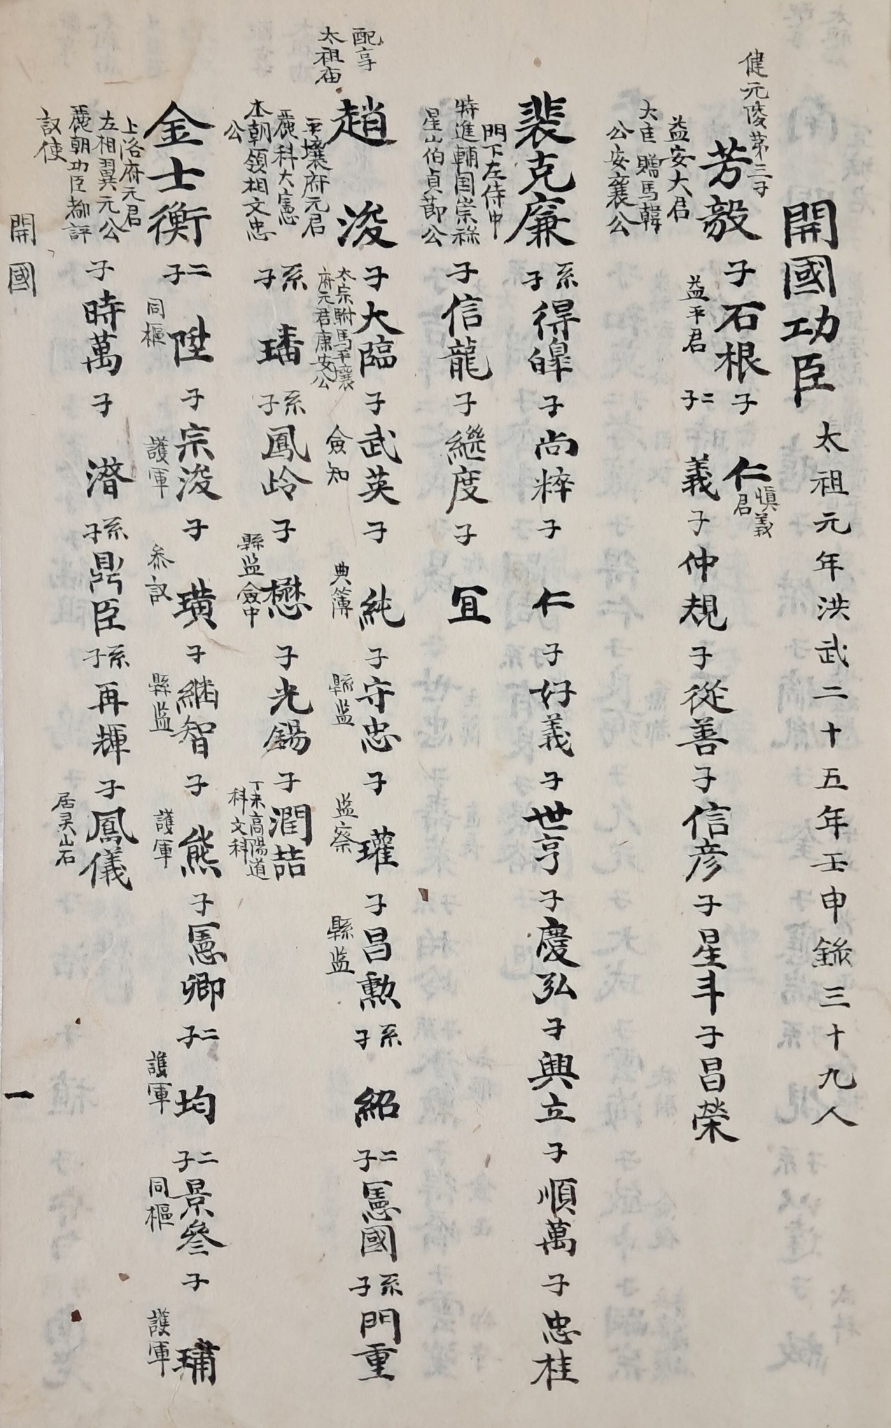 開國功臣 太祖元年洪武二十五年壬申錄三十九人
健元陵第三子
芳毅 子石根 子 仁 愼義君
益安大君
大匡贈馬韓
公安襄公
益平君
二子 義 子仲規 子從善 子信彦 子星斗 子昌榮
裴克廉 系子得皥 子尚粹 子 仁 子好義 子世亨 子慶弘 子興立 子順萬 子忠桂
門下左侍中
特進輔国崇祿
星山伯貞節公
子信龍 子繼度 子 冝
配享
太祖庙
趙 浚 子大臨 子武英 子 純 子守忠 子 瓘 子昌勲 系子 紹 二子憲國 系子門重
太宗駙馬平壤
府元君康安公
僉知
典簿
縣监
监察
縣监
平壤府元君
麗科大憲
本朝領相文忠
公
系子 璠 系子鳳岭 子 懋 子光錫 子潤喆
縣监僉中
丁未高陽道
科文科
金士衡 二子 陞 子宗浚 子 璜 子継智 子 熊 子憲卿 二子 均 二子景參 子 璛
同樞
護軍
参議
縣监
護軍
護軍
同樞
護軍
上洛府元君
左相翼元公
麗朝功臣都評
議使
子時萬 子 潜 系子鼎臣 系子再輝 子鳳儀
居灵山石
開國
一